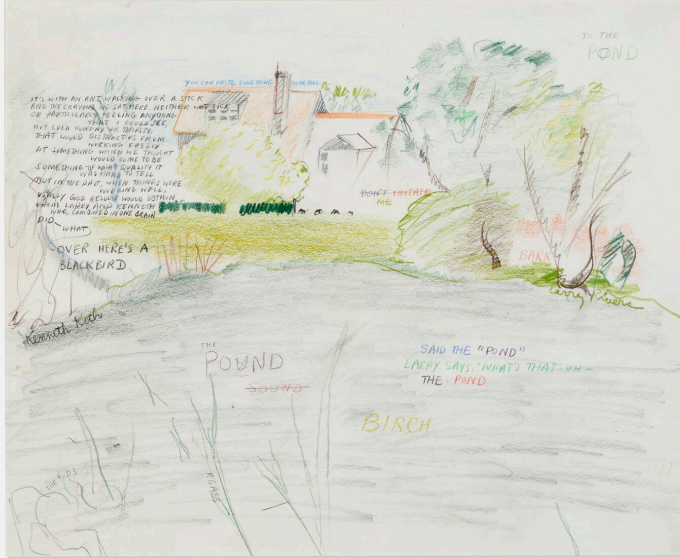 TO THE
POND
YOU CAN WRITE SOMETHING OVER THIS
IT'S WITH AN ANT WALKING OVER A STICK
AND THE CRAYONS WE SAT HERE. NEITHER WAS SICK
OR PARTICULARLY FEELING ANYTHING
THAT I COULD SEE,
NOT EVEN HUNGRY OR THIRSTY.
THAT WOULD DISTRACT US FROM
WORKING FREELY
AT SOMETHING WHEN WE THOUGHT
WOULD COME TO BE
SOMETHING OF WHAT QUALITY IT
WAS HARD TO TELL
BUT IN THE PAST, WHEN THINGS WERE
WORKING WELL,
USUALLY GOOD RESULTS WOULD OBTAIN
FROM LARRY AND KENNETH
WHO, COMBINED IN ONE BRAIN
DID
WHAT
DON'T IMITATE
ME
OVER HERE'S A
BLACKBIRD
BARK
Larry Rivers
Kenneth Koch
THE
POUND
SOUND
SAID THE "POND"
LARRY SAYS, "WHAT'S THAT-UH-
THE POND
BIRCH
WEEDS